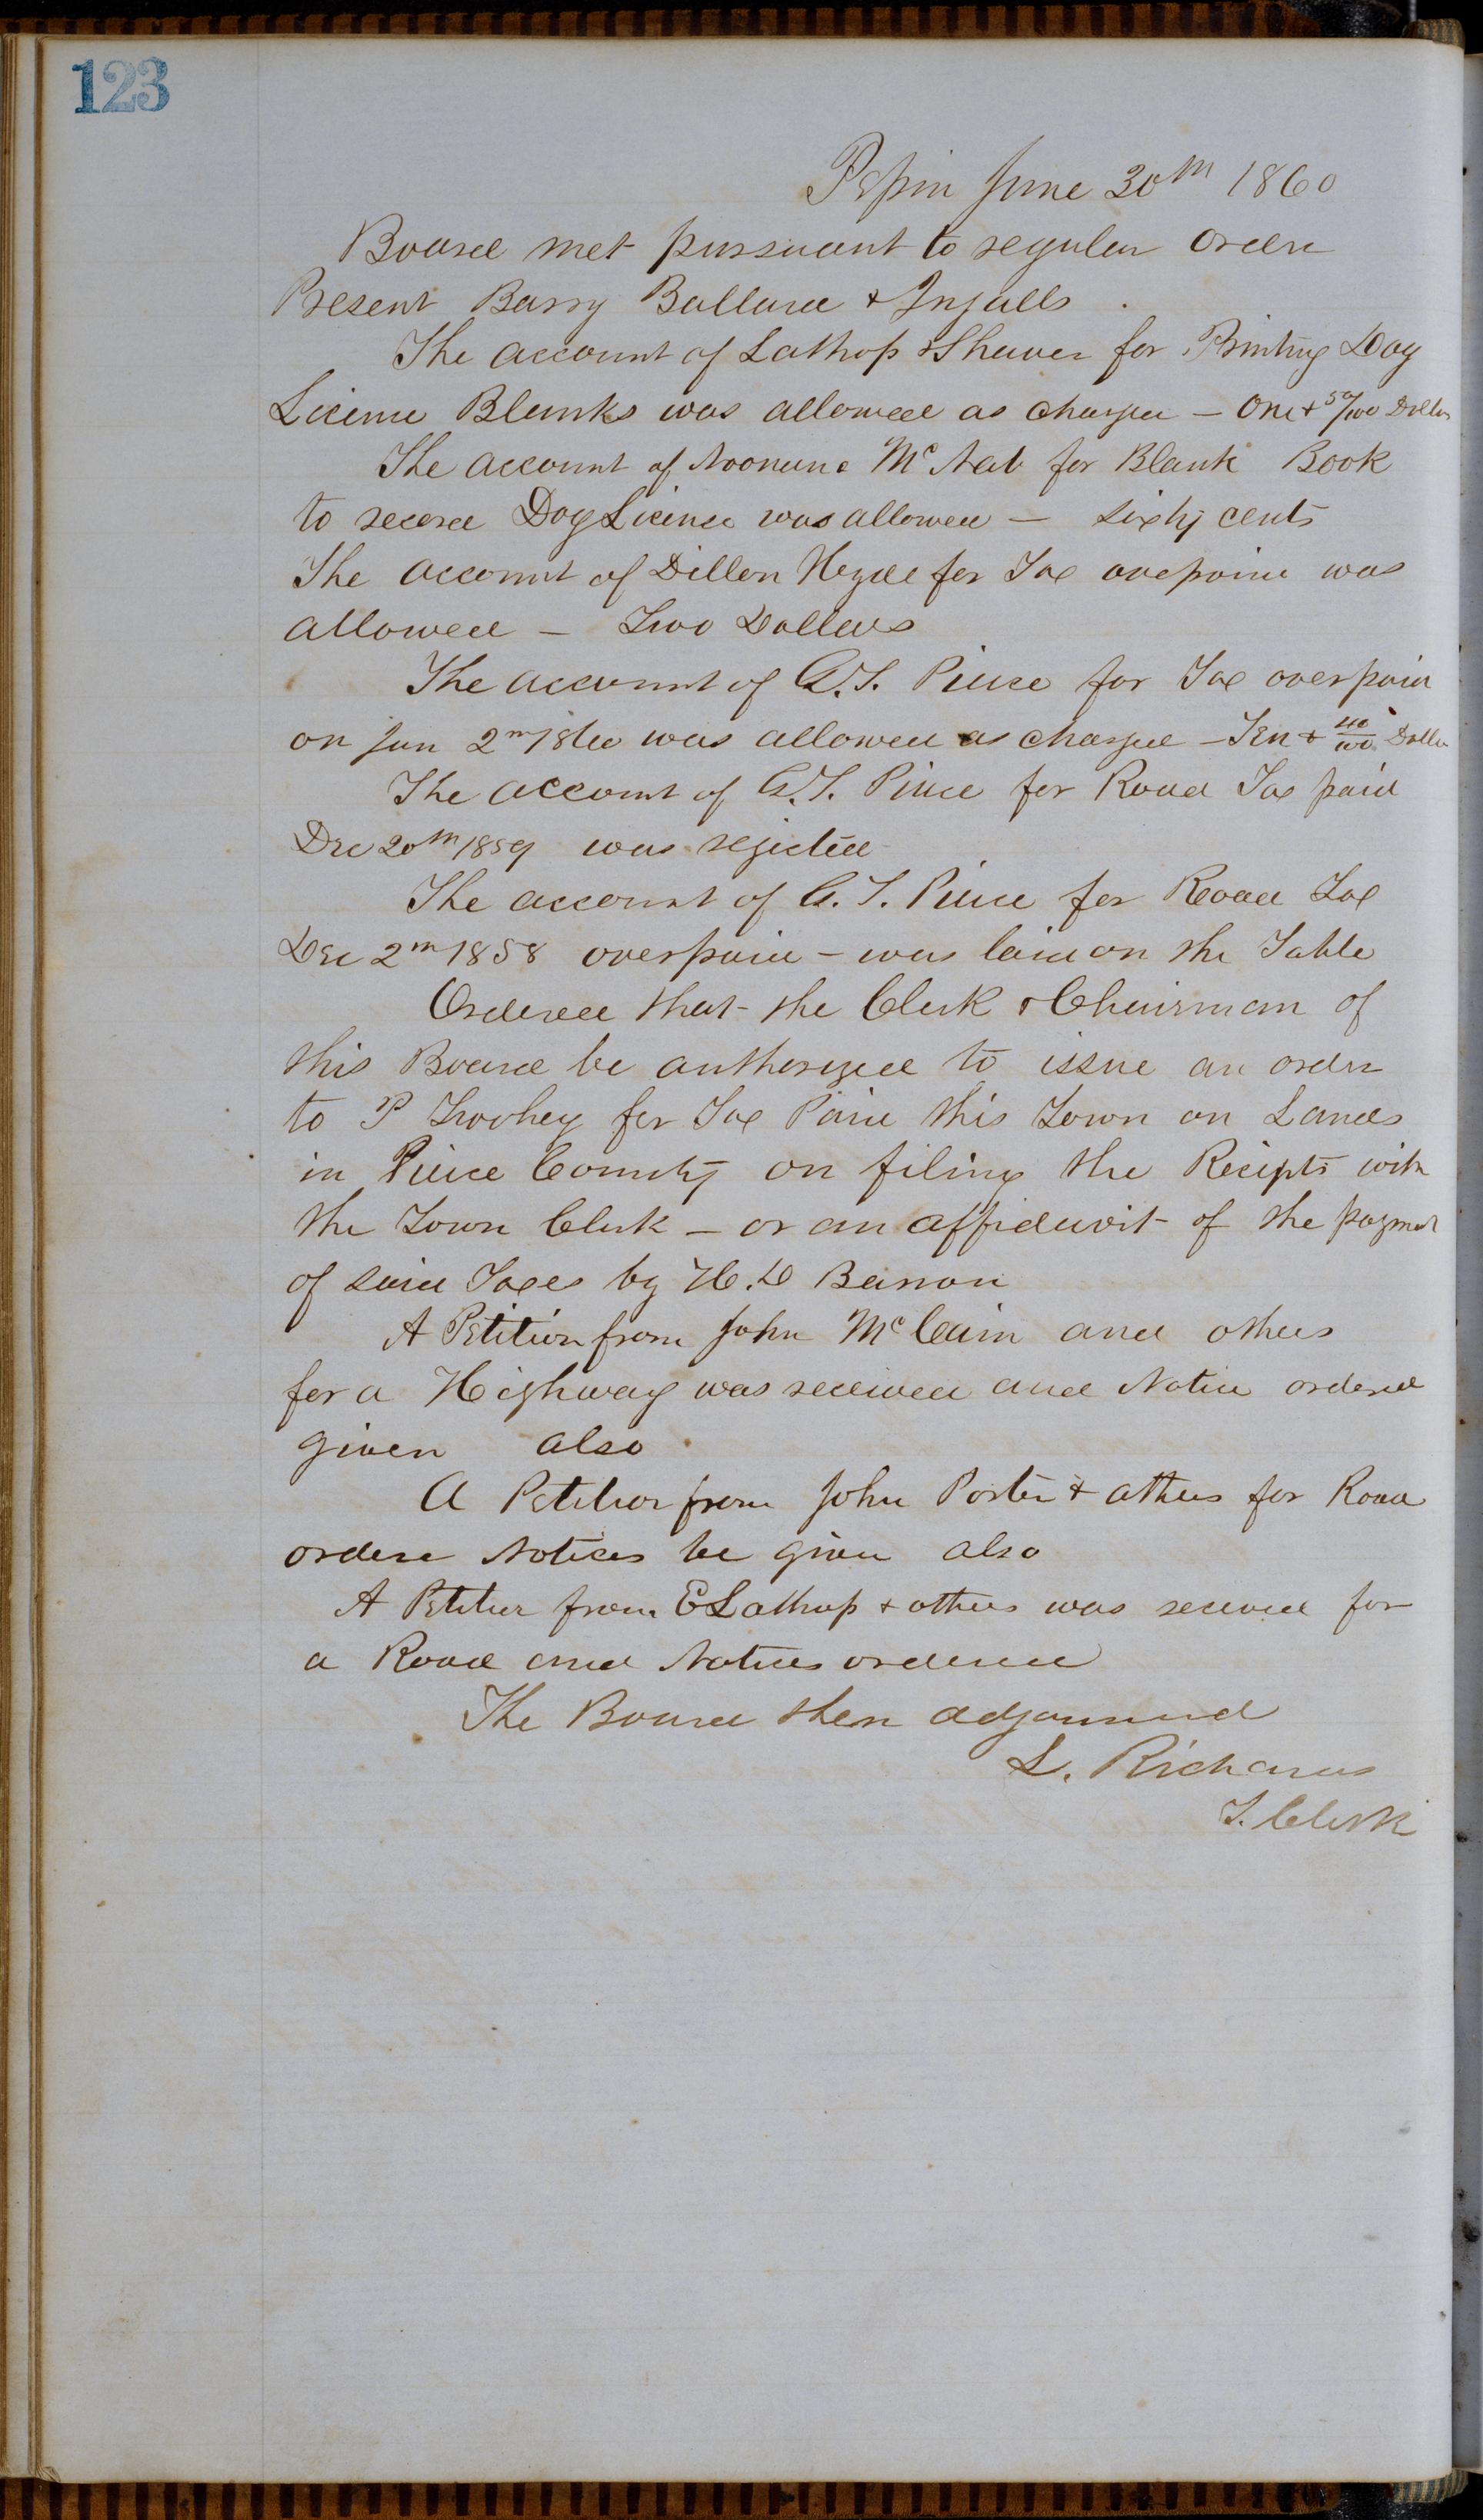 123
Pepin June 30th 1860
Board met pursuant to regular order
Present Barry Ballard & Ingalls
The account of Lathrop & Shaver for Printing Dog
License Blanks was allowed as charged – One & 50/100 Dollars
The account of McNab for Blank Book
to record Dog License was allowed – sixty cents
The account of Dillon Hyde for Tax overpaid was
allowed – Two Dollars
The account of G.T. Pierce for Tax overpaid
on Jan 2nd 1860 was allowed as charged – Ten & 40/100 Dollars
The account of G.T. Pierce for Road Tax paid
Dec 20th 1859 was rejected
The account of G.T. Pierce for Road Tax
Dec 2nd 1858 overpaid – was laid on the Table
Ordered that the Clerk & Chairman of
this Board be authorized to issue an order
to P for Tax Paid this Town on Lands
in Pierce County on filing the Recipts with
the Town Clerk – or an affidavit of the payment
of said Taxes by H.D Barron
A Petition from John McCain and others
for a Highway was received and Notice ordered
given also
A Petition from John Porter & others for Road
ordered Notices be given also
A Petition from E Lathrop & others was received for
a Road and Notices ordered
The Board then adjourned
L. Richards
T. Clerk